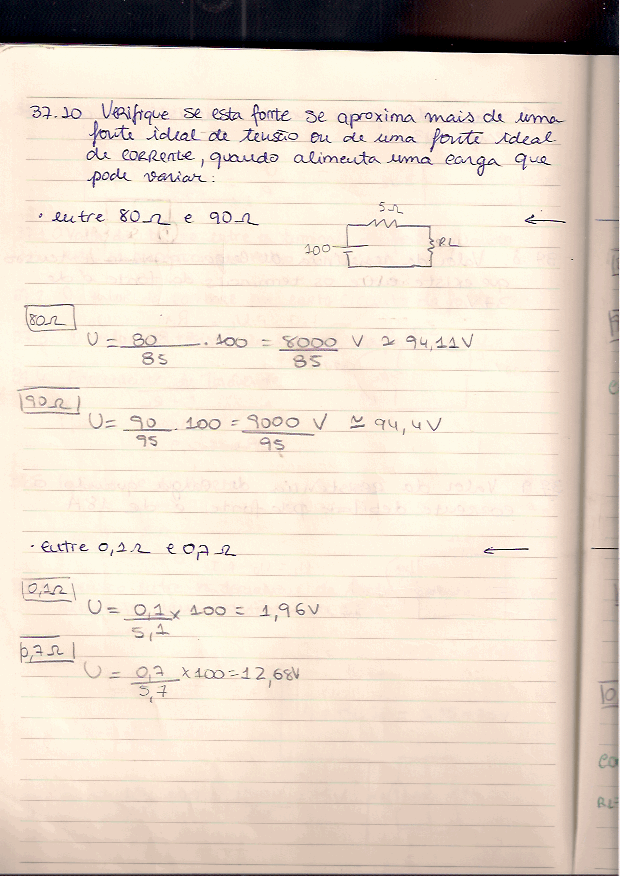 37.10 Verifique se esta fonte se aproxima mais de uma
fonte ideal de tensão ou de uma fonte ideal
de corrente, quando alimenta uma carga que
pode variar:
• entre 80Ω e 90Ω
5Ω
100
RL
80Ω
U = 80/85 . 100 = 8000/85 V ≃ 94,11V
90Ω
U = 90/95 . 100 = 9000/95 V ≃ 94,4V
• entre 0,1Ω e 0,7Ω
0,1Ω
U = 0,1/5,1 × 100 = 1,96V
0,7Ω
U = 0,7/5,7 × 100 = 12,68V
RL=